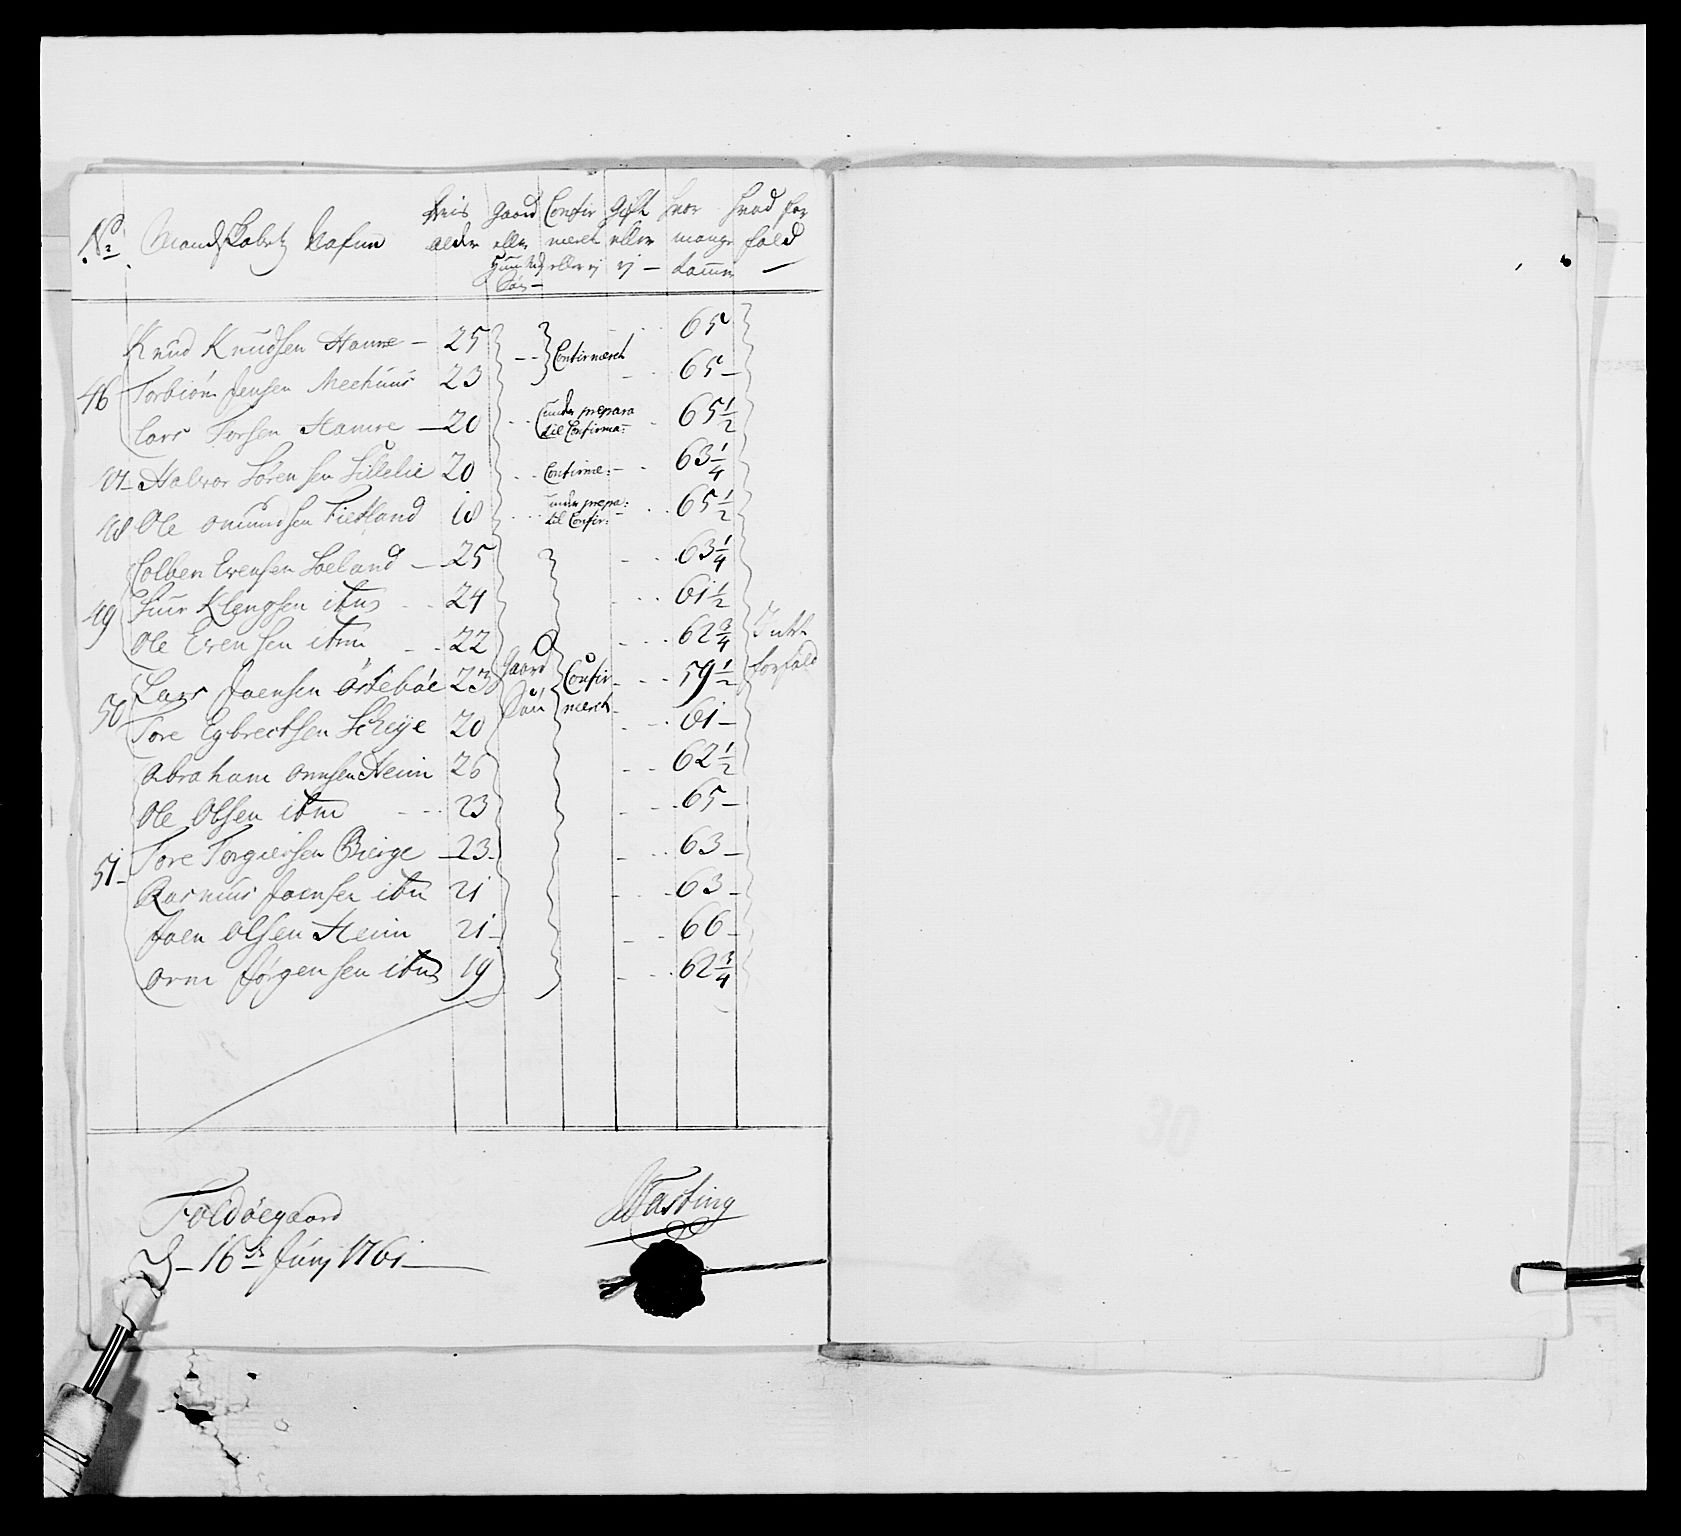 No. Mandskabetz Nafne deris alder Gaard eller Huusmands Søn Confirmeret eller ej Gift eller ej hvor mange tommer hvad for fald
Knud Knudsen Hamre 25 Confirmeret 65
46 Torbiøn Jensen Meehuus 23 65
Lars Torsen Hamre 20 under prepara til Confirma: 65 1/2
47 Halvor Sørensen Lillelie 20 Confirme: 63 1/4
48 Ole Omundsen Fietland 18 under prepa: til Confir: 65 1/2
Colben Evensen Soeland 25 63 1/4
49 Siur Klengsen itm 24 61 1/2
Ole Evensen itm 22 62 3/4 Intet forfald
50 Lars Joensen Østebøe 23 Gaard Søn Confirmeret 59 1/2
Tore Egbrectsen Scheije 20 61
Abraham Omnsen Heim 26 62 1/2
Ole Olsen itm 23 65
51 Tore Torgiersen Bierge 23 63
Rasmus Joensen itm 21 63
Joen Olsen Heim 21 66
Orm Jørgensen itm 19 62 3/4
Foldøegaard
d 16de Junj 1761
Fasting